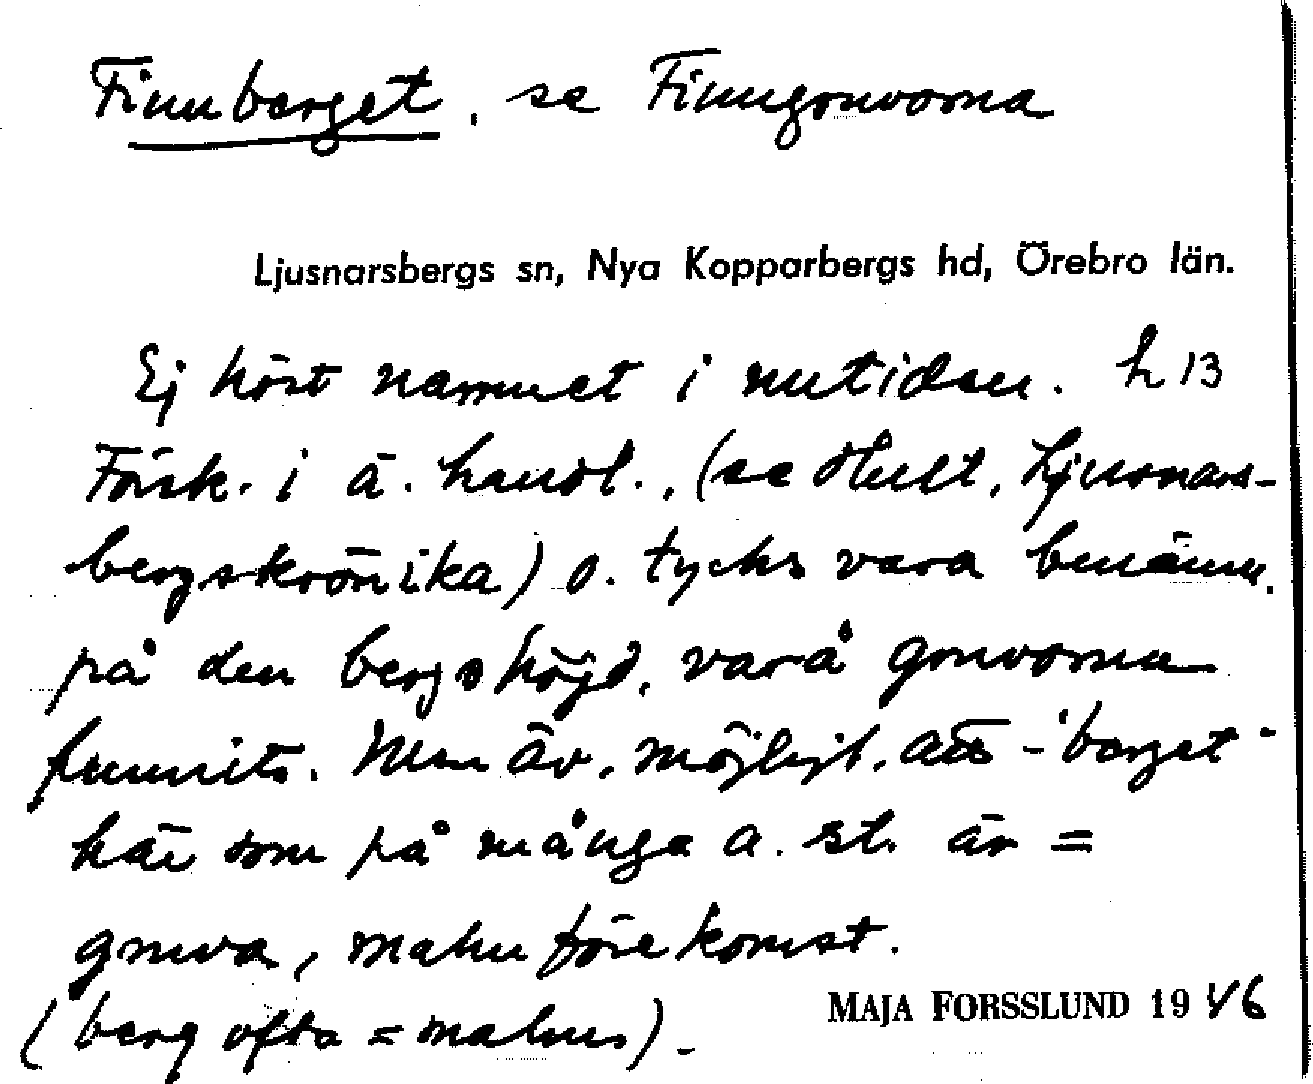 Finnberget, se Finngruvorna
Ljusnarsbergs sn, Nya Kopparbergs hd, Örebro län.
Ej hört namnet i nutiden. h 13
Förek. i ä. handl., (se Hult, Ljusnars-
bergskrönika) o. tycks vara benämn.
på den bergshöjd, varå gruvorna
funnits. Men äv. möjligt, att -"berget"
här som på många a. st. är =
gruva, malmförekomst.
(berg ofta = malm).
MAJA FORSSLUND 1946